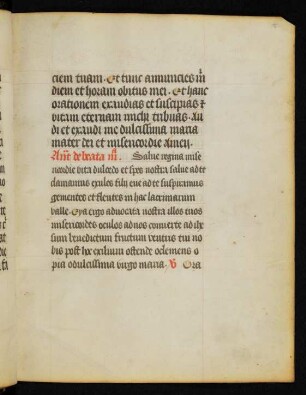 ciem tuam. Et tunc annuncies m̄
diem et horam obitus mei. Et hanc
orationem exaudias et suscipias ⁊
vitam eternam michi tribuas. Au
di et exaudi me dulcissima maria
mater dei et misericordie amen.
Añ de beata m̄. Salue regina mise
ricordie vita dulcedo et spes nostra salue ad te
clamamus exules filii eue ad te suspiramus
gementes et flentes in hac lacrimarum
valle. Eya ergo aduocata nostra illos tuos
misericordes oculos ad nos conuerte ad ihe
sum benedictum fructum ventris tui no
bis post hoc exilium ostende o clemens o
pia o dulcissima virgo maria. ℣ Ora